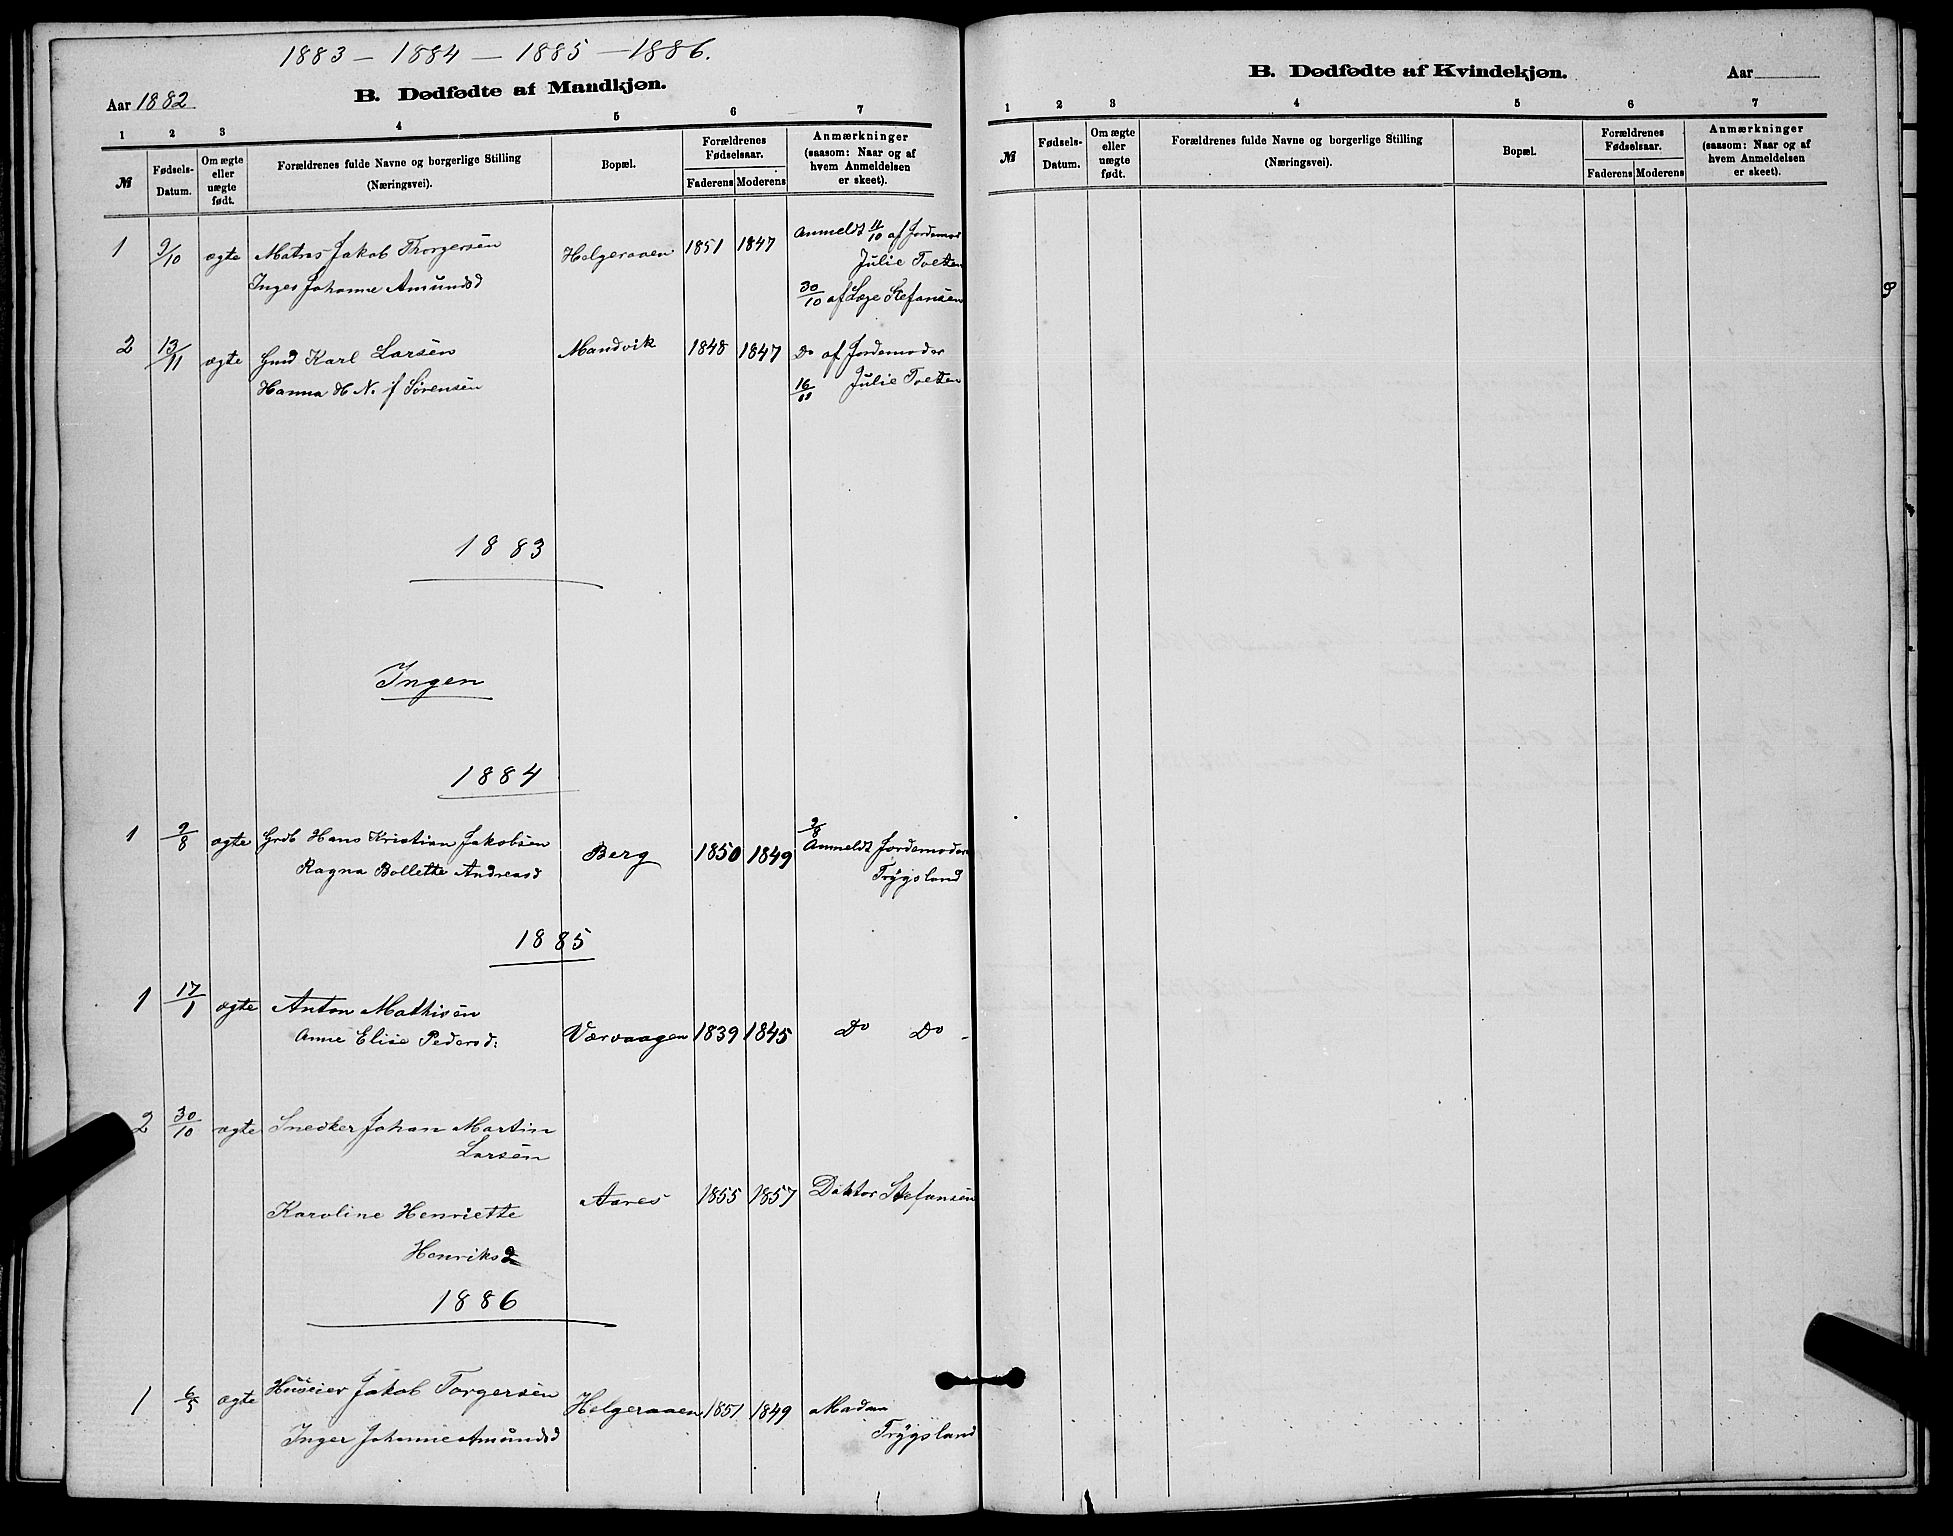 1883 - 1884 - 1885 - 1886.
Aar 1882
B. Dødfødte af Mandkjøn.
1 2 3 4 5 6 7
№
Fødsels-Datum.
Om ægte eller uægte født.
Forældrenes fulde Navne og borgerlige Stilling
(Næringsvei).
Bopæl.
Forældrenes Fødselsaar.
Faderens Moderens
Anmærkninger
(saasom: Naar og af
hvem Anmeldelsen
er skeet).
1 9/10 ægte Matros Jakob Thorgersen Helgeraaen 1851 1847 Anmeldt 11/10 af Jordemor
Julie Toetten
Inger Johanne Amundsd
30/10 af Læge Stefansen
2 13/11 ægte Gmd Karl Larsen Mandvik 1848 1847 Do af Jordemoder
Hanna H N. f Sørensen
16/11 Julie Toetten
1883
Ingen
1884
1 9/8 ægte Grdb Hans Kristian Jakobsen Berg 1850 1849 9/8 Anmeldt Jordemoder
Ragna Bollette Andreasd Trygsland
1885
1 17/1 ægte Anton Mathisen
Anne Elise Pedersd: Værvaagen 1839 1845 Do Do -
2 30/10 ægte Snedker Johan Martin
Larsen
Aares 1855 1857 Doktor Stefansen
Karoline Henriette
Henriksd
1886
1 6/5 ægte Huseier Jakob Torgersen Helgeraaen 1851 1849 Madam
Inger Johanne Amundsd Trygsland
B. Dødfødte af Kvindekjøn.
Aar
1 2 3 4 5 6 7
№
Fødsels-Datum.
Om ægte eller uægte født.
Forældrenes fulde Navne og borgerlige Stilling
(Næringsvei).
Bopæl.
Forældrenes Fødselsaar.
Faderens Moderens
Anmærkninger
(saasom: Naar og af
hvem Anmeldelsen
er skeet).